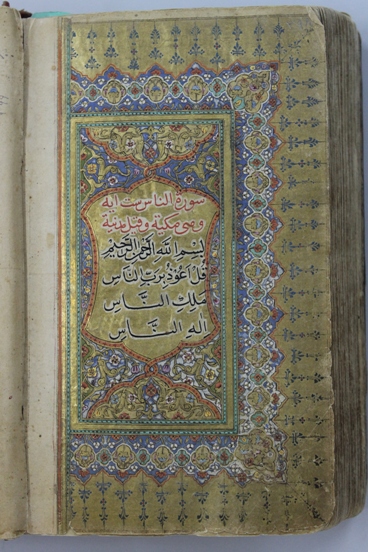 سورة الناس ست اية
وهى مكية وقيل مدنية
بسم الله الرحمن الرحيم
قل اعوذ برب الناس
ملك الناس
اله الناس